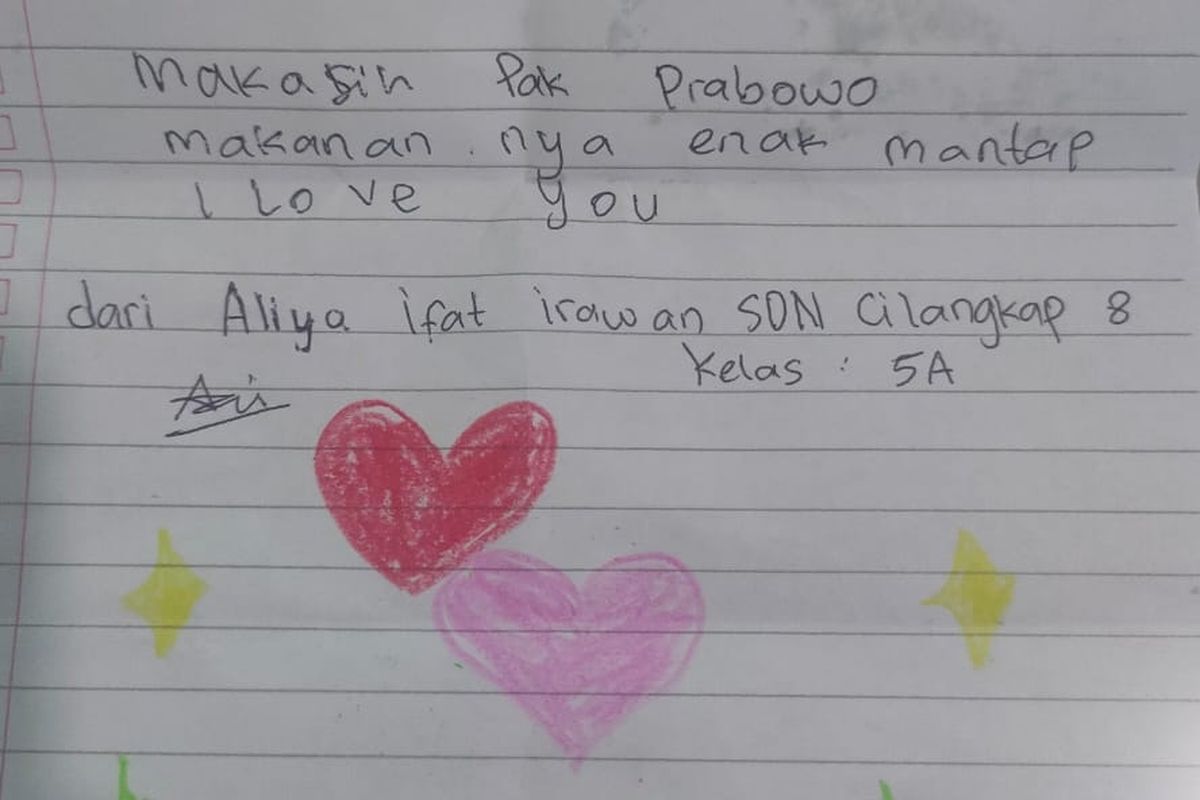 Makasih Pak Prabowo
makanan.nya enak mantap
I Love you
dari Aliya ifat irawan SDN Cilangkap 8
Kelas : 5A